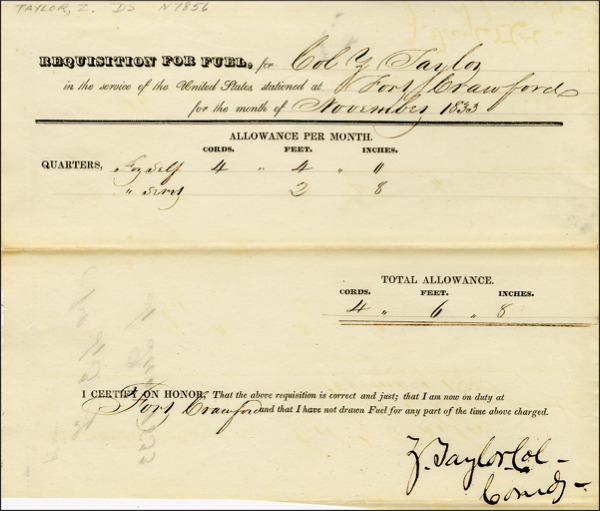 TAYLOR, Z. DS N7856
REQUISITION FOR FUEL, for Col Z Taylor
in the service of the United States stationed at Fort Crawford
for the month of November 1833
ALLOWANCE PER MONTH.
CORDS. FEET. INCHES.
QUARTERS, For Self 4 " 4 " 0
" Servt 2 8
TOTAL ALLOWANCE.
CORDS. FEET. INCHES.
4 " 6 " 8
I CERTIFY ON HONOR, That the above requisition is correct and just; that I am now on duty at
Fort Crawford and that I have not drawn Fuel for any part of the time above charged.
Z. Taylor Col
Comdg